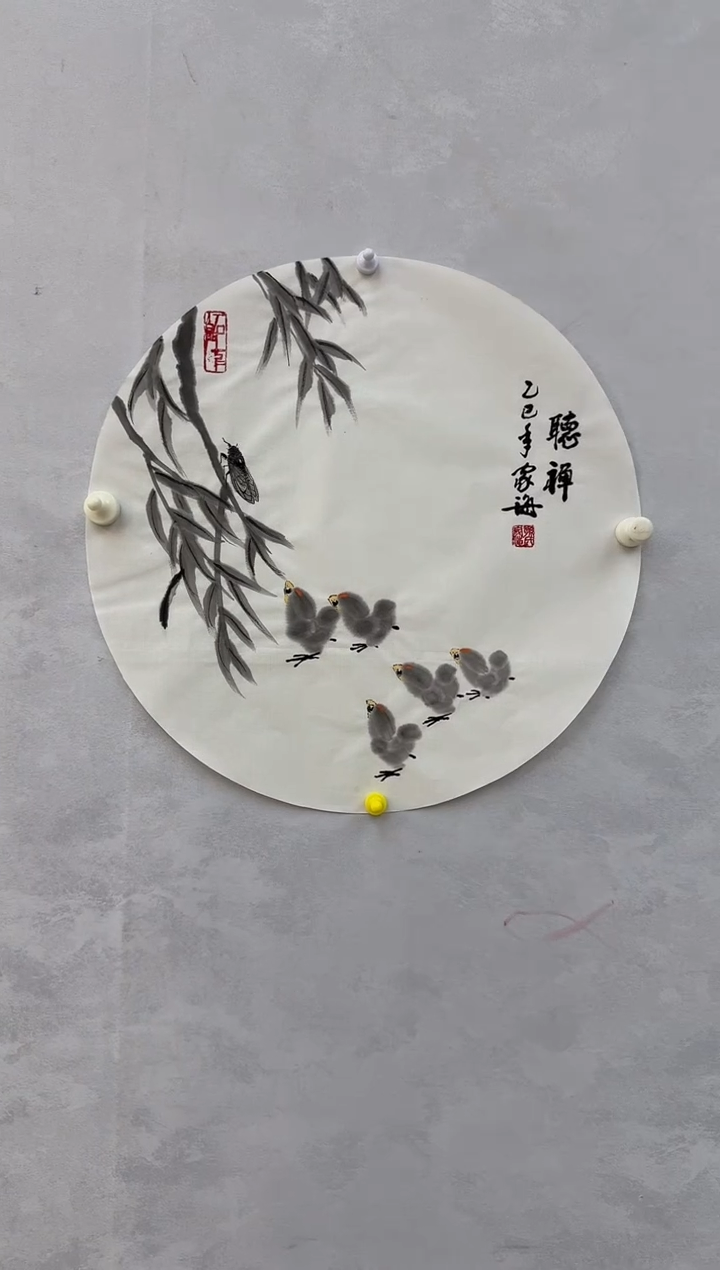 聽禪
乙巳年家海